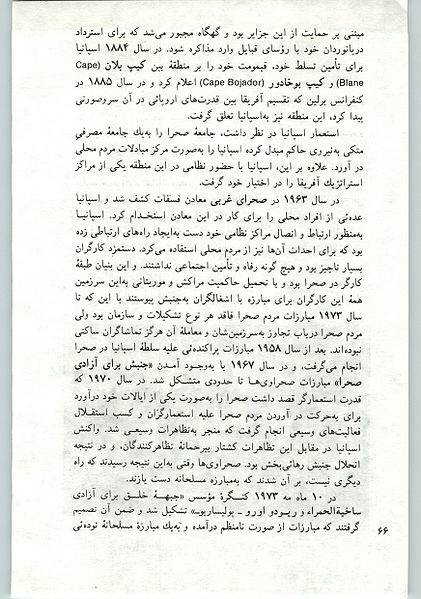 مبتنی بر حمایت از این جزایر بود و گهگاه مجبور می‌شد که برای استرداد
دریانوردان خود با رؤسای قبایل وارد مذاکره شود. در سال ۱۸۸۴ اسپانیا
برای تأمین تسلط خود، قیمومت خود را بر منطقهٔ بین کیپ بلان (Cape
Blane) و کیپ بوخادور (Cape Bojador) اعلام کرد و در سال ۱۸۸۵ در
کنفرانس برلین که تقسیم آفریقا بین قدرت‌های اروپائی در آن سروصورتی
پیدا کرد، این منطقه نیز به‌اسپانیا تعلق گرفت.
استعمار اسپانیا در نظر داشت، جامعهٔ صحرا را به‌یك جامعهٔ مصرفی
متکی به‌نیروی حاکم مبدل کرده اسپانیا را به‌صورت مرکز مبادلات مردم محلی
در آورد. علاوه بر این، اسپانیا با حضور نظامی در این منطقه یکی از مراکز
استراتژیك آفریقا را در اختیار خود گرفت.
در سال ۱۹۶۳ در صحرای غربی معادن فسفات کشف شد و اسپانیا
عده‌ئی از افراد محلی را برای کار در این معادن استخدام کرد. اسپانیا
به‌منظور ارتباط و اتصال مراکز نظامی خود دست به‌ایجاد راه‌های ارتباطی زده
بود که برای احداث آن‌ها نیز از مردم محلی استفاده می‌کرد. دستمزد کارگران
بسیار ناچیز بود و هیچ گونه رفاه و تأمین اجتماعی نداشتند. و این بنیان طبقهٔ
کارگر در صحرا بود و با تحمیل حاکمیت مراکش و موریتانی به‌این سرزمین
همهٔ این کارگران برای مبارزه با اشغالگران به‌جنبش پیوستند با این که تا
سال ۱۹۷۳ مبارزات مردم صحرا فاقد هر نوع تشکیلات و سازمان بود ولی
مردم صحرا درباب تجاوز به‌سرزمین‌شان و معاملهٔ آن هرگز تماشاگران ساکتی
نبوده‌اند. بعد از سال ۱۹۵۸ مبارزات پراکنده‌ئی علیه سلطهٔ اسپانیا در صحرا
انجام می‌گرفت، و در سال ۱۹۶۷ با به‌وجود آمدن «جنبش برای آزادی
صحرا» مبارزات صحراوی‌ها تا حدودی متشکل شد. در سال ۱۹۷۰ که
قدرت استعمارگر قصد داشت صحرا را به‌صورت یکی از ایالات خود درآورد
برای به‌حرکت در آوردن مردم صحرا علیه استعمارگران و کسب استقلال
فعالیت‌های وسیعی انجام گرفت که منجر به‌تظاهرات وسیعی شد. واکنش
اسپانیا در مقابل این تظاهرات کشتار بیرحمانهٔ تظاهرکنندگان، و در نتیجه
انحلال جنبش رهائی‌بخش بود. صحراوی‌ها وقتی به‌این نتیجه رسیدند که راه
دیگری نیست، بر آن شدند که به‌مبارزه مسلحانه دست یازند.
در ۱۰ ماه مه ۱۹۷۳ کنگرهٔ مؤسس «جبههٔ خلق برای آزادی
ساخیةالحمراء و ریودو اورو ـ پولیساریو» تشکیل شد و ضمن آن تصمیم
گرفتند که مبارزات از صورت نامنظم درآمده و به‌یك مبارزهٔ مسلحانهٔ توده‌ئی
۶۶